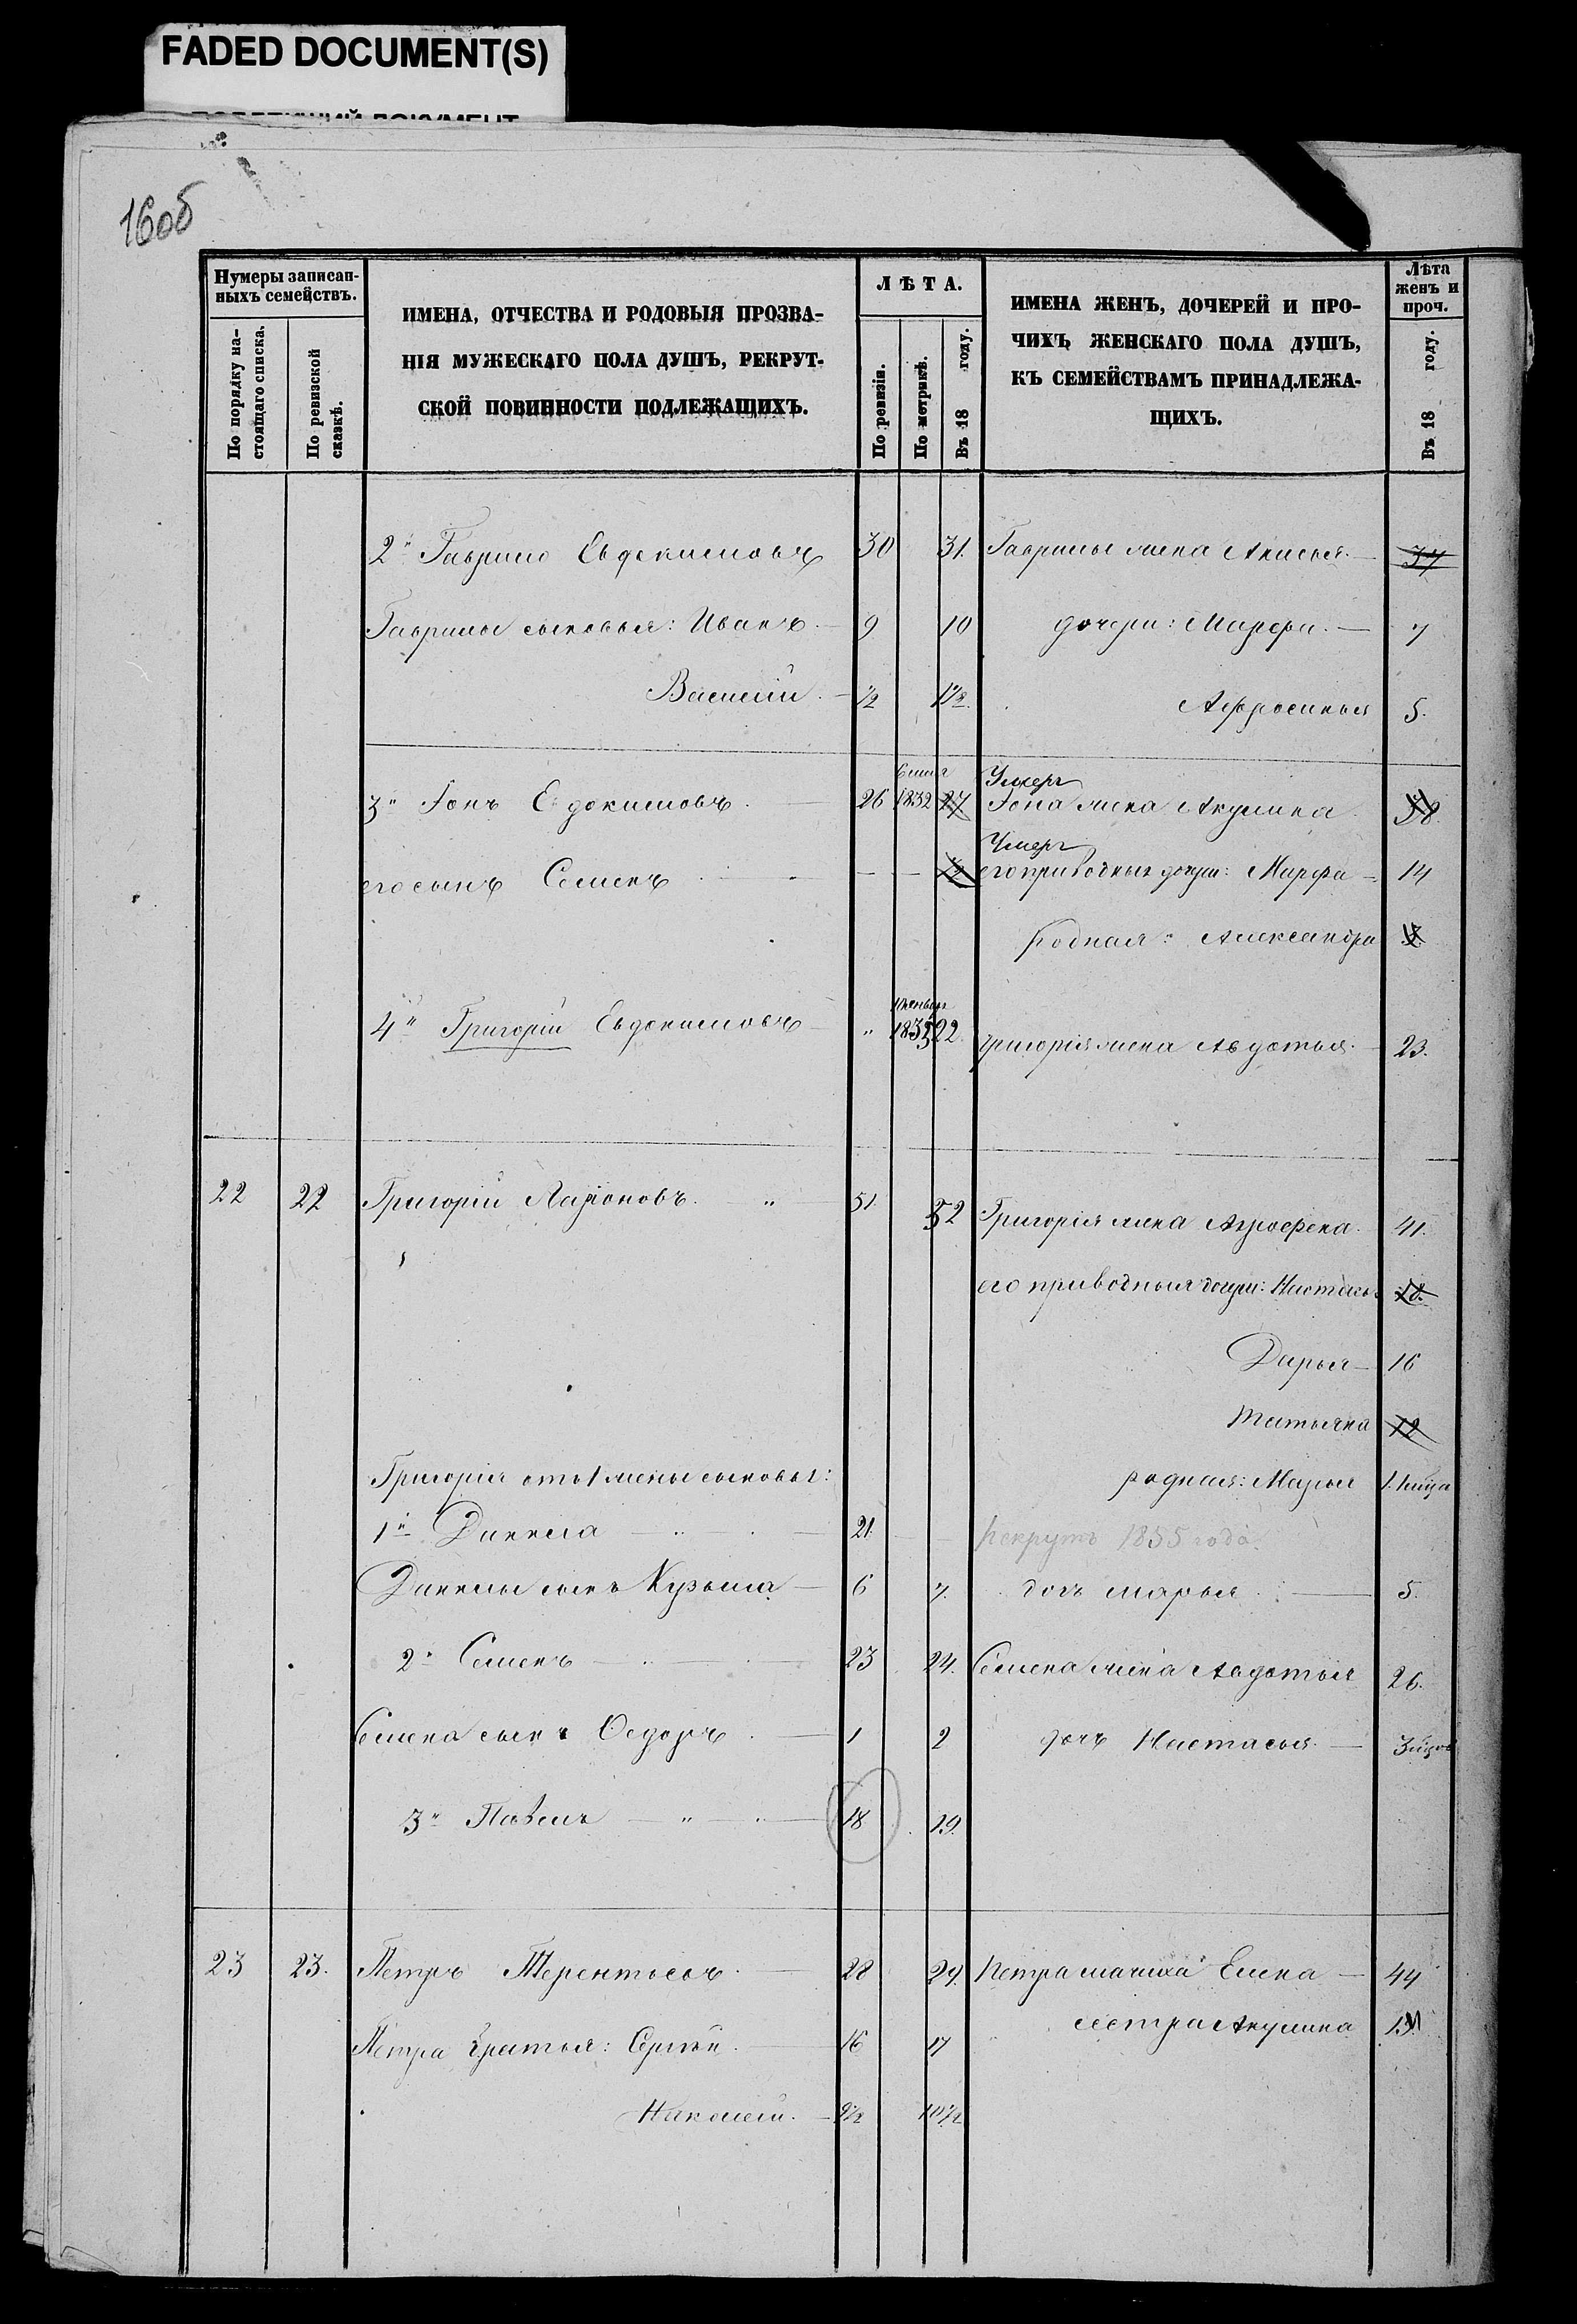 FADED DOCUMENT(S)
16об
Нумеры записан-
ныхъ семействъ.
По порядку на-
стоящаго списка.
По ревизской
сказкѣ.
ИМЕНА, ОТЧЕСТВА И РОДОВЫЯ ПРОЗВА-
НІЯ МУЖЕСКАГО ПОЛА ДУШЪ, РЕКРУТ-
СКОЙ ПОВИННОСТИ ПОДЛЕЖАЩИХЪ.
ЛѢТА.
По ревизіи.
По метрикѣ.
Въ 18 году.
ИМЕНА ЖЕНЪ, ДОЧЕРЕЙ И ПРО-
ЧИХЪ ЖЕНСКАГО ПОЛА ДУШЪ,
КЪ СЕМЕЙСТВАМЪ ПРИНАДЛЕЖА-
ЩИХЪ.
Лѣта
женъ и
проч.
Въ 18 году.
2й Гаврило Евдокимовъ 30 31. Гаврилы жена Анисья 37
Гаврилы сыновья: Иванъ 9 10 дочери: Марфа 7
Василій 1/2 1 1/2 Афросинья 5.
Умеръ
3й Іонъ Евдокимовъ 26 1832 27 Іона жена Акулина 38
Умеръ
его сынъ Семенъ 1/2 его приводныя дочери: Марфа 14
родная: Александра
4й Григорій Евдокимовъ " 1835 22 Григорія жена Авдотья 23.
22 22 Григорій Ларіоновъ 51 52 Григорія жена Агрофена 41.
его приводныя дочери: Настасья 18.
Дарья 16
Татьяна 12
Григорія отъ 1 жены сыновья: родная: Марья
1й Данила 21. рекрутъ 1855 года.
Данилы сынъ Кузьма 6 7. дочь Марья 5.
2й Семенъ 23 24. Семена жена Авдотья 26.
Семена сынъ Ѳедоръ 1 2 дочь Настасья
3й Павелъ 18 19.
23 23. Петръ Терентьевъ 28 29. Петра мачиха Елена 44
сестра Акулина
Петра братья: Сергѣй 16 17
Николай 9 1/2 10 1/2